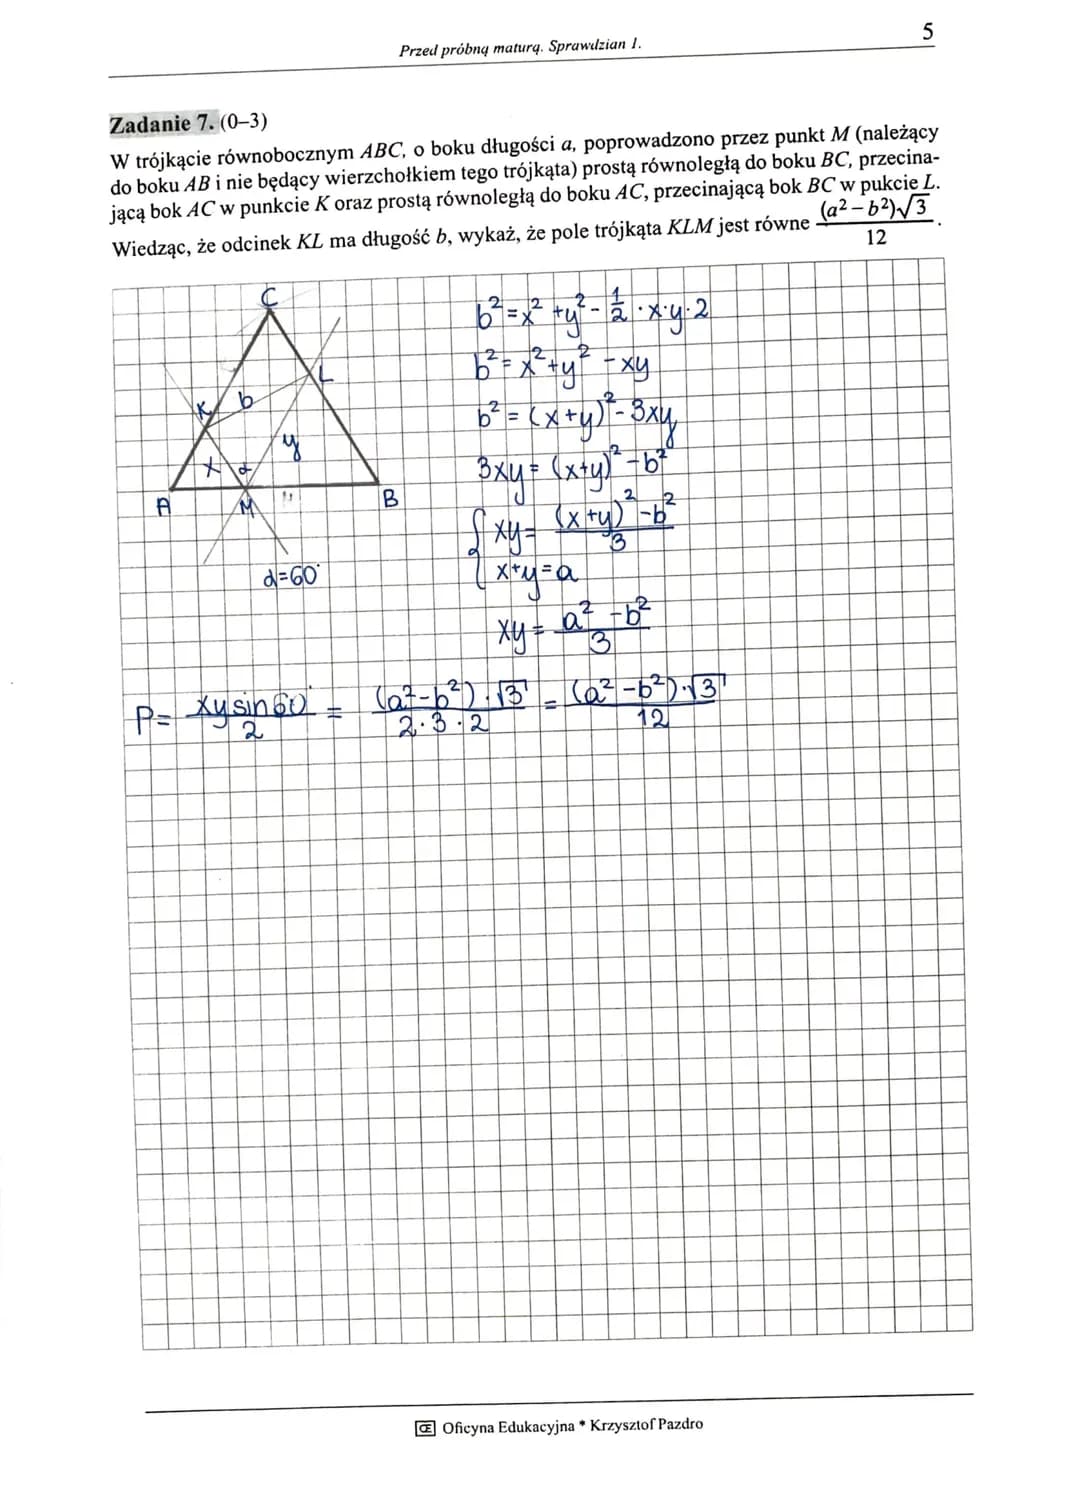 Przed próbną maturą. Sprawdzian 1.
5
Zadanie 7. (0–3)
W trójkącie równobocznym ABC, o boku długości a, poprowadzono przez punkt M (należący
do boku AB i nie będący wierzchołkiem tego trójkąta) prostą równoległą do boku BC, przecina-
jącą bok AC w punkcie K oraz prostą równoległą do boku AC, przecinającą bok BC w pukcie L.
Wiedząc, że odcinek KL ma długość b, wykaż, że pole trójkąta KLM jest równe (a² – b²)√3 / 12 .
C
L
K
b
y
x
α
A
M
B
α=60°
b² = x² + y² - 1/2 · x·y·2
b² = x² + y² - xy
b² = (x+y)² - 3xy
3xy = (x+y)² - b²
{ xy = (x+y)² - b² / 3
x+y=a
xy = a² - b² / 3
P = xy sin 60° / 2 = (a² - b²)·√3 / 2·3·2 = (a² - b²)·√3 / 12
Œ Oficyna Edukacyjna * Krzysztof Pazdro